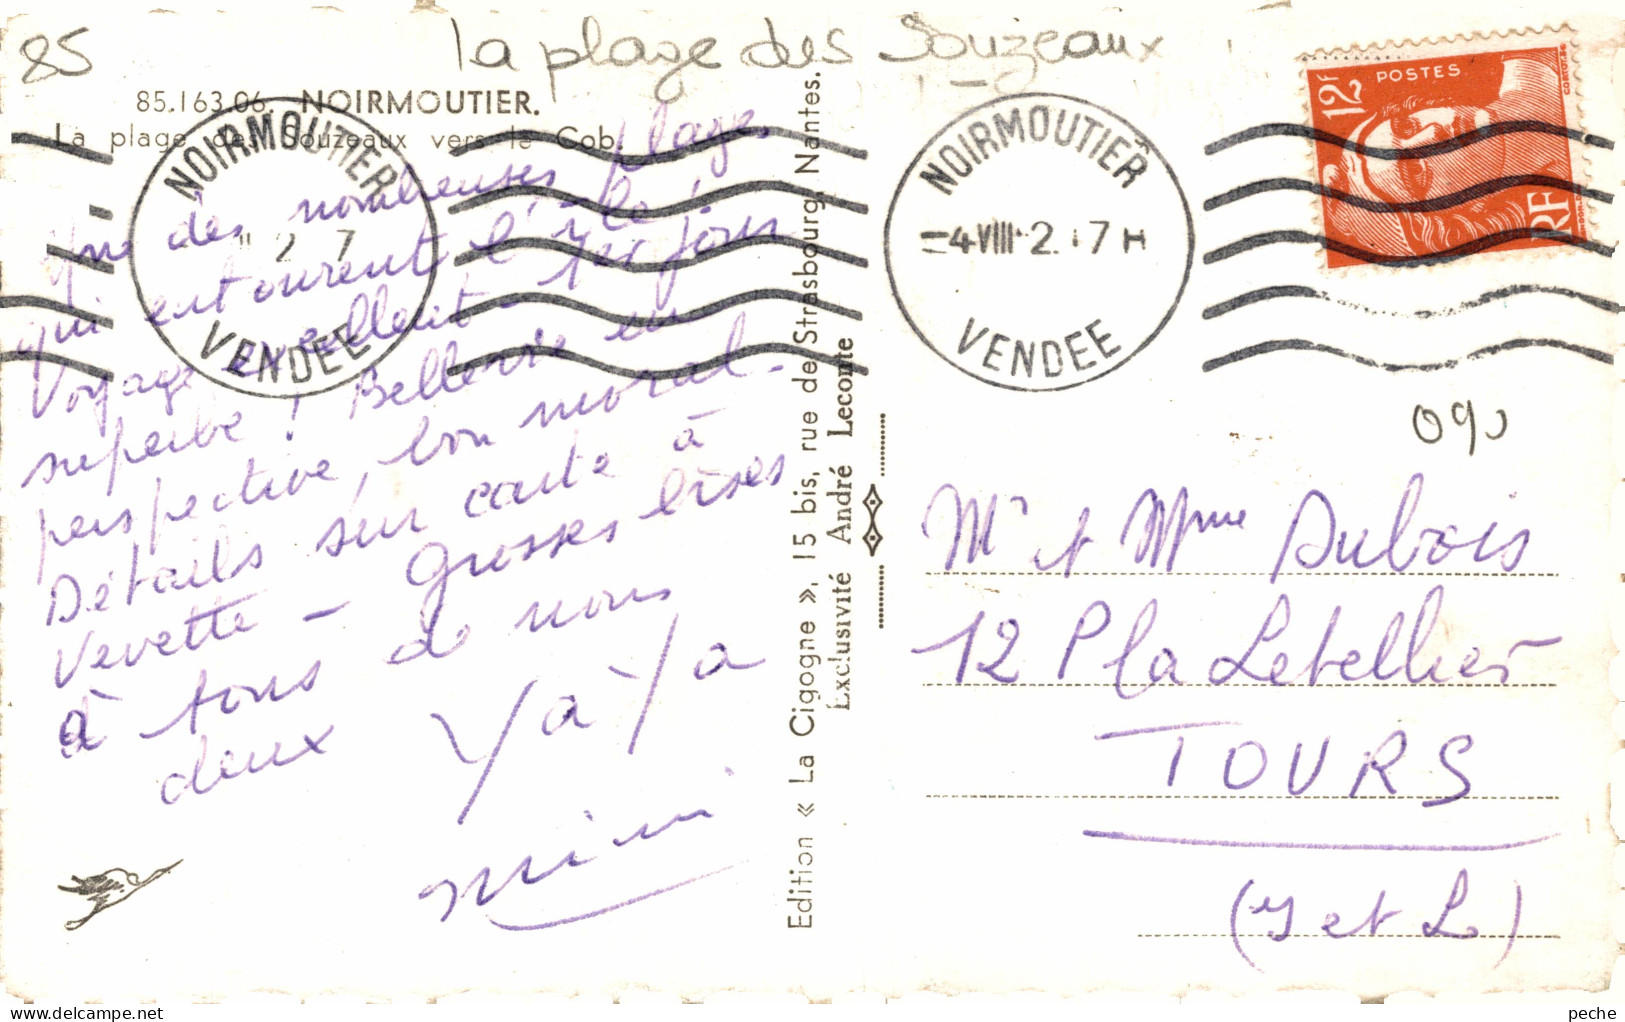 85
la plage des Souzeaux
85.163.06. NOIRMOUTIER.
La plage des Souzeaux vers le Cob
Une des nombreuses plages
qui entourent l'île.
Voyage excellent - 1er jour
superbe ! Bellevie en
perspective, bon moral.
Détails sur carte à
Vevette - Grosses bises
à tous de nous
deux Yaya
mimi
NOIRMOUTIER
2 7
VENDEE
Edition « La Cigogne », 15 bis, rue de Strasbourg, Nantes.
Exclusivité André Leconte
NOIRMOUTIER
-4 VIII 2. 17 H
VENDEE
12F
POSTES
RF
090
Mr et Mme Dubois
12 Pl a Letellier
TOURS
(I et L)
peche